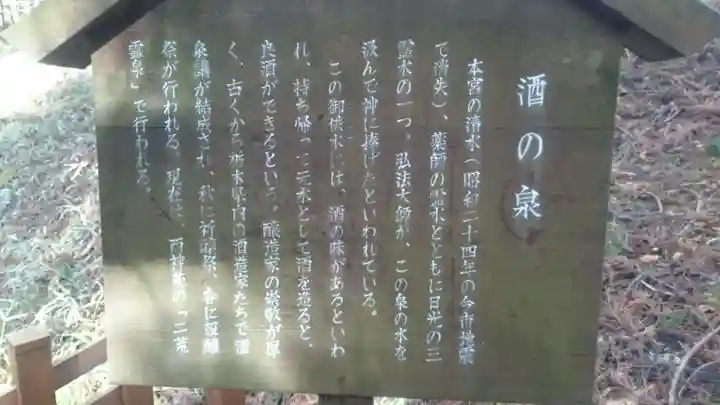 酒の泉
本宮の清水（昭和二十四年の今市地震
で消失）、薬師の霊水とともに日光の三
霊水の一つ。弘法大師が、この泉の水を
汲んで神に捧げたといわれている。
この御供水には、酒の味があるといわ
れ、持ち帰って元水として酒を造ると、
良酒ができるという。醸造家の崇敬が厚
く、古くから栃木県内の酒造家たちで酒
泉講が結成され、秋に祈願祭、春に報醸
祭が行われる。現在は、酉神苑の「二荒
霊泉」で行われる。